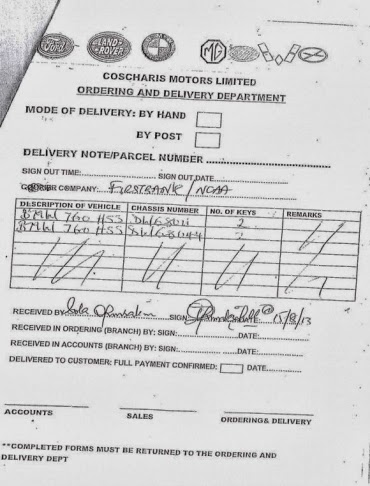 Ford LAND ROVER MG
COSCHARIS MOTORS LIMITED
ORDERING AND DELIVERY DEPARTMENT
MODE OF DELIVERY: BY HAND
BY POST
DELIVERY NOTE/PARCEL NUMBER
SIGN OUT TIME: SIGN OUT DATE
COMPANY: FIRSTBANK / NCAA
DESCRIPTION OF VEHICLE CHASSIS NUMBER NO. OF KEYS REMARKS
BMW 760 HSS 2
BMW 760 HSS 2
RECEIVED BY SIGN DATE: 15/8/13
RECEIVED IN ORDERING (BRANCH) BY: SIGN: DATE:
RECEIVED IN ACCOUNTS (BRANCH) BY: SIGN: DATE:
DELIVERED TO CUSTOMER: FULL PAYMENT CONFIRMED: DATE
ACCOUNTS SALES ORDERING & DELIVERY
**COMPLETED FORMS MUST BE RETURNED TO THE ORDERING AND
DELIVERY DEPT